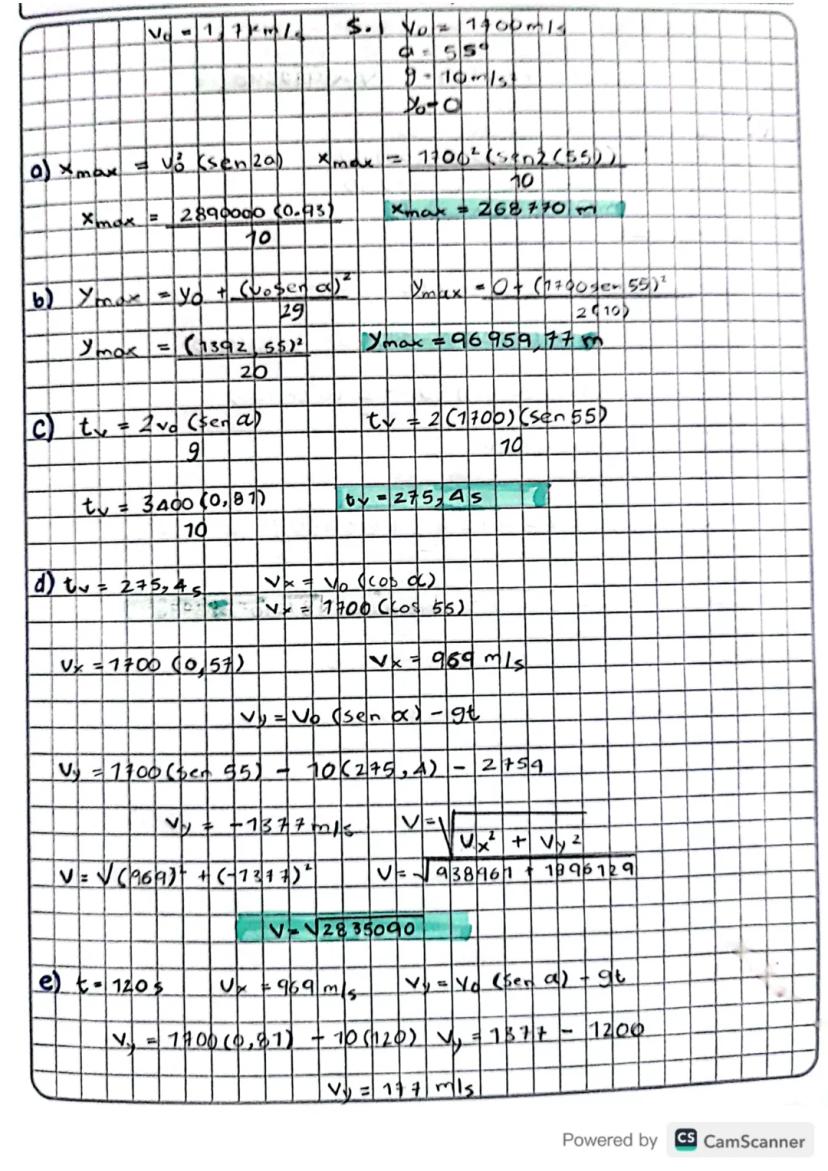 V₀ = 1,7 km/s   S.I   V₀ = 1700 m/s
α = 55°
g = 10 m/s²
y₀ = 0
a) xmax = V₀² (sen 2α)   xmax = 1700² (sen2(55)) / 10
xmax = 2890000 (0.93) / 10   xmax = 268770 m
b) ymax = y₀ + (V₀ sen α)² / 2g   ymax = 0 + (1700 sen 55)² / 2(10)
ymax = (1392,55)² / 20   ymax = 96959,77 m
c) tv = 2v₀ (sen α) / g   tv = 2(1700)(sen 55) / 10
tv = 3400 (0,81) / 10   tv = 275,4 s
d) tv = 275,4 s   Vx = V₀ (cos α)
Vx = 1700 (cos 55)
Vx = 1700 (0,57)   Vx = 969 m/s
Vy = V₀ (sen α) - gt
Vy = 1700 (sen 55) - 10(275,4) - 2754
Vy = -1377 m/s   V = √(Vx² + Vy²)
V = √(969)² + (-1377)²   V = √938961 + 1896129
V = √2835090
e) t = 120 s   Vx = 969 m/s   Vy = V₀ (sen α) - gt
Vy = 1700 (0,81) - 10(120)   Vy = 1377 - 1200
Vy = 177 m/s
Powered by CS CamScanner